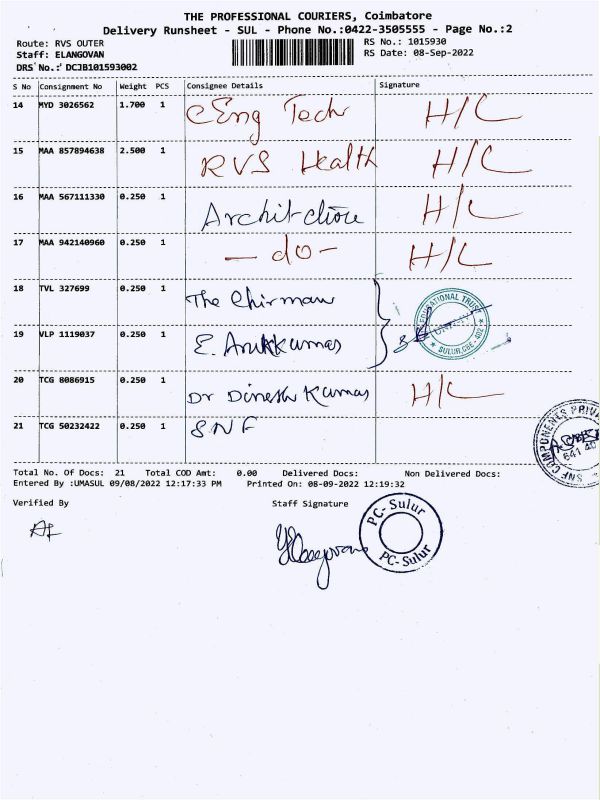 THE PROFESSIONAL COURIERS, Coimbatore
Delivery Runsheet - SUL - Phone No.:0422-3505555 - Page No.:2
Route: RVS OUTER
RS No.: 1015930
Staff: ELANGOVAN
RS Date: 08-Sep-2022
DRS No.: DCJB101593002
S No Consignment No Weight PCS Consignee Details Signature
14 MYD 3026562 1.700 1 CEng Tech H/C
15 MAA 857894638 2.500 1 RVS Health H/C
16 MAA 567111330 0.250 1 H/C
17 MAA 942140960 0.250 1 - do - H/C
18 TVL 327699 0.250 1 The Chirman
19 VLP 1119037 0.250 1 E. Arukkumar
EDUCATIONAL TRUST
SULUR, CBE - 402
20 TCG 8086915 0.250 1 Dr Dinesh Kumar H/C
21 TCG 50232422 0.250 1 SNF
SNF COMPONENTS PRIVA
641 40
Total No. Of Docs: 21 Total COD Amt: 0.00 Delivered Docs: Non Delivered Docs:
Entered By :UMASUL 09/08/2022 12:17:33 PM Printed On: 08-09-2022 12:19:32
Verified By Staff Signature
PC- Sulur
PC- Sulur